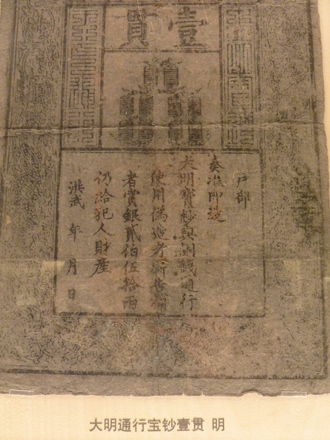 壹貫
戶部
奏准印造
大明寶鈔與銅錢通行
使用偽造者斬告捕
者賞銀貳伯伍拾兩
仍給犯人財產
洪武 年 月 日
大明通行宝钞壹贯 明